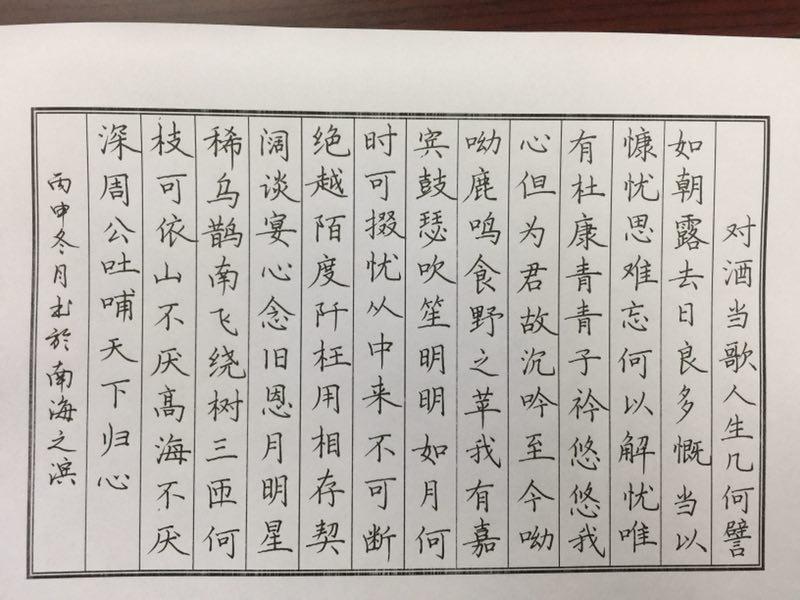 对酒当歌人生几何譬
如朝露去日良多慨当以
慷忧思难忘何以解忧唯
有杜康青青子衿悠悠我
心但为君故沉吟至今呦
呦鹿鸣食野之苹我有嘉
宾鼓瑟吹笙明明如月何
时可掇忧从中来不可断
绝越陌度阡枉用相存契
阔谈宴心念旧恩月明星
稀乌鹊南飞绕树三匝何
枝可依山不厌高海不厌
深周公吐哺天下归心
丙申冬月书於南海之滨